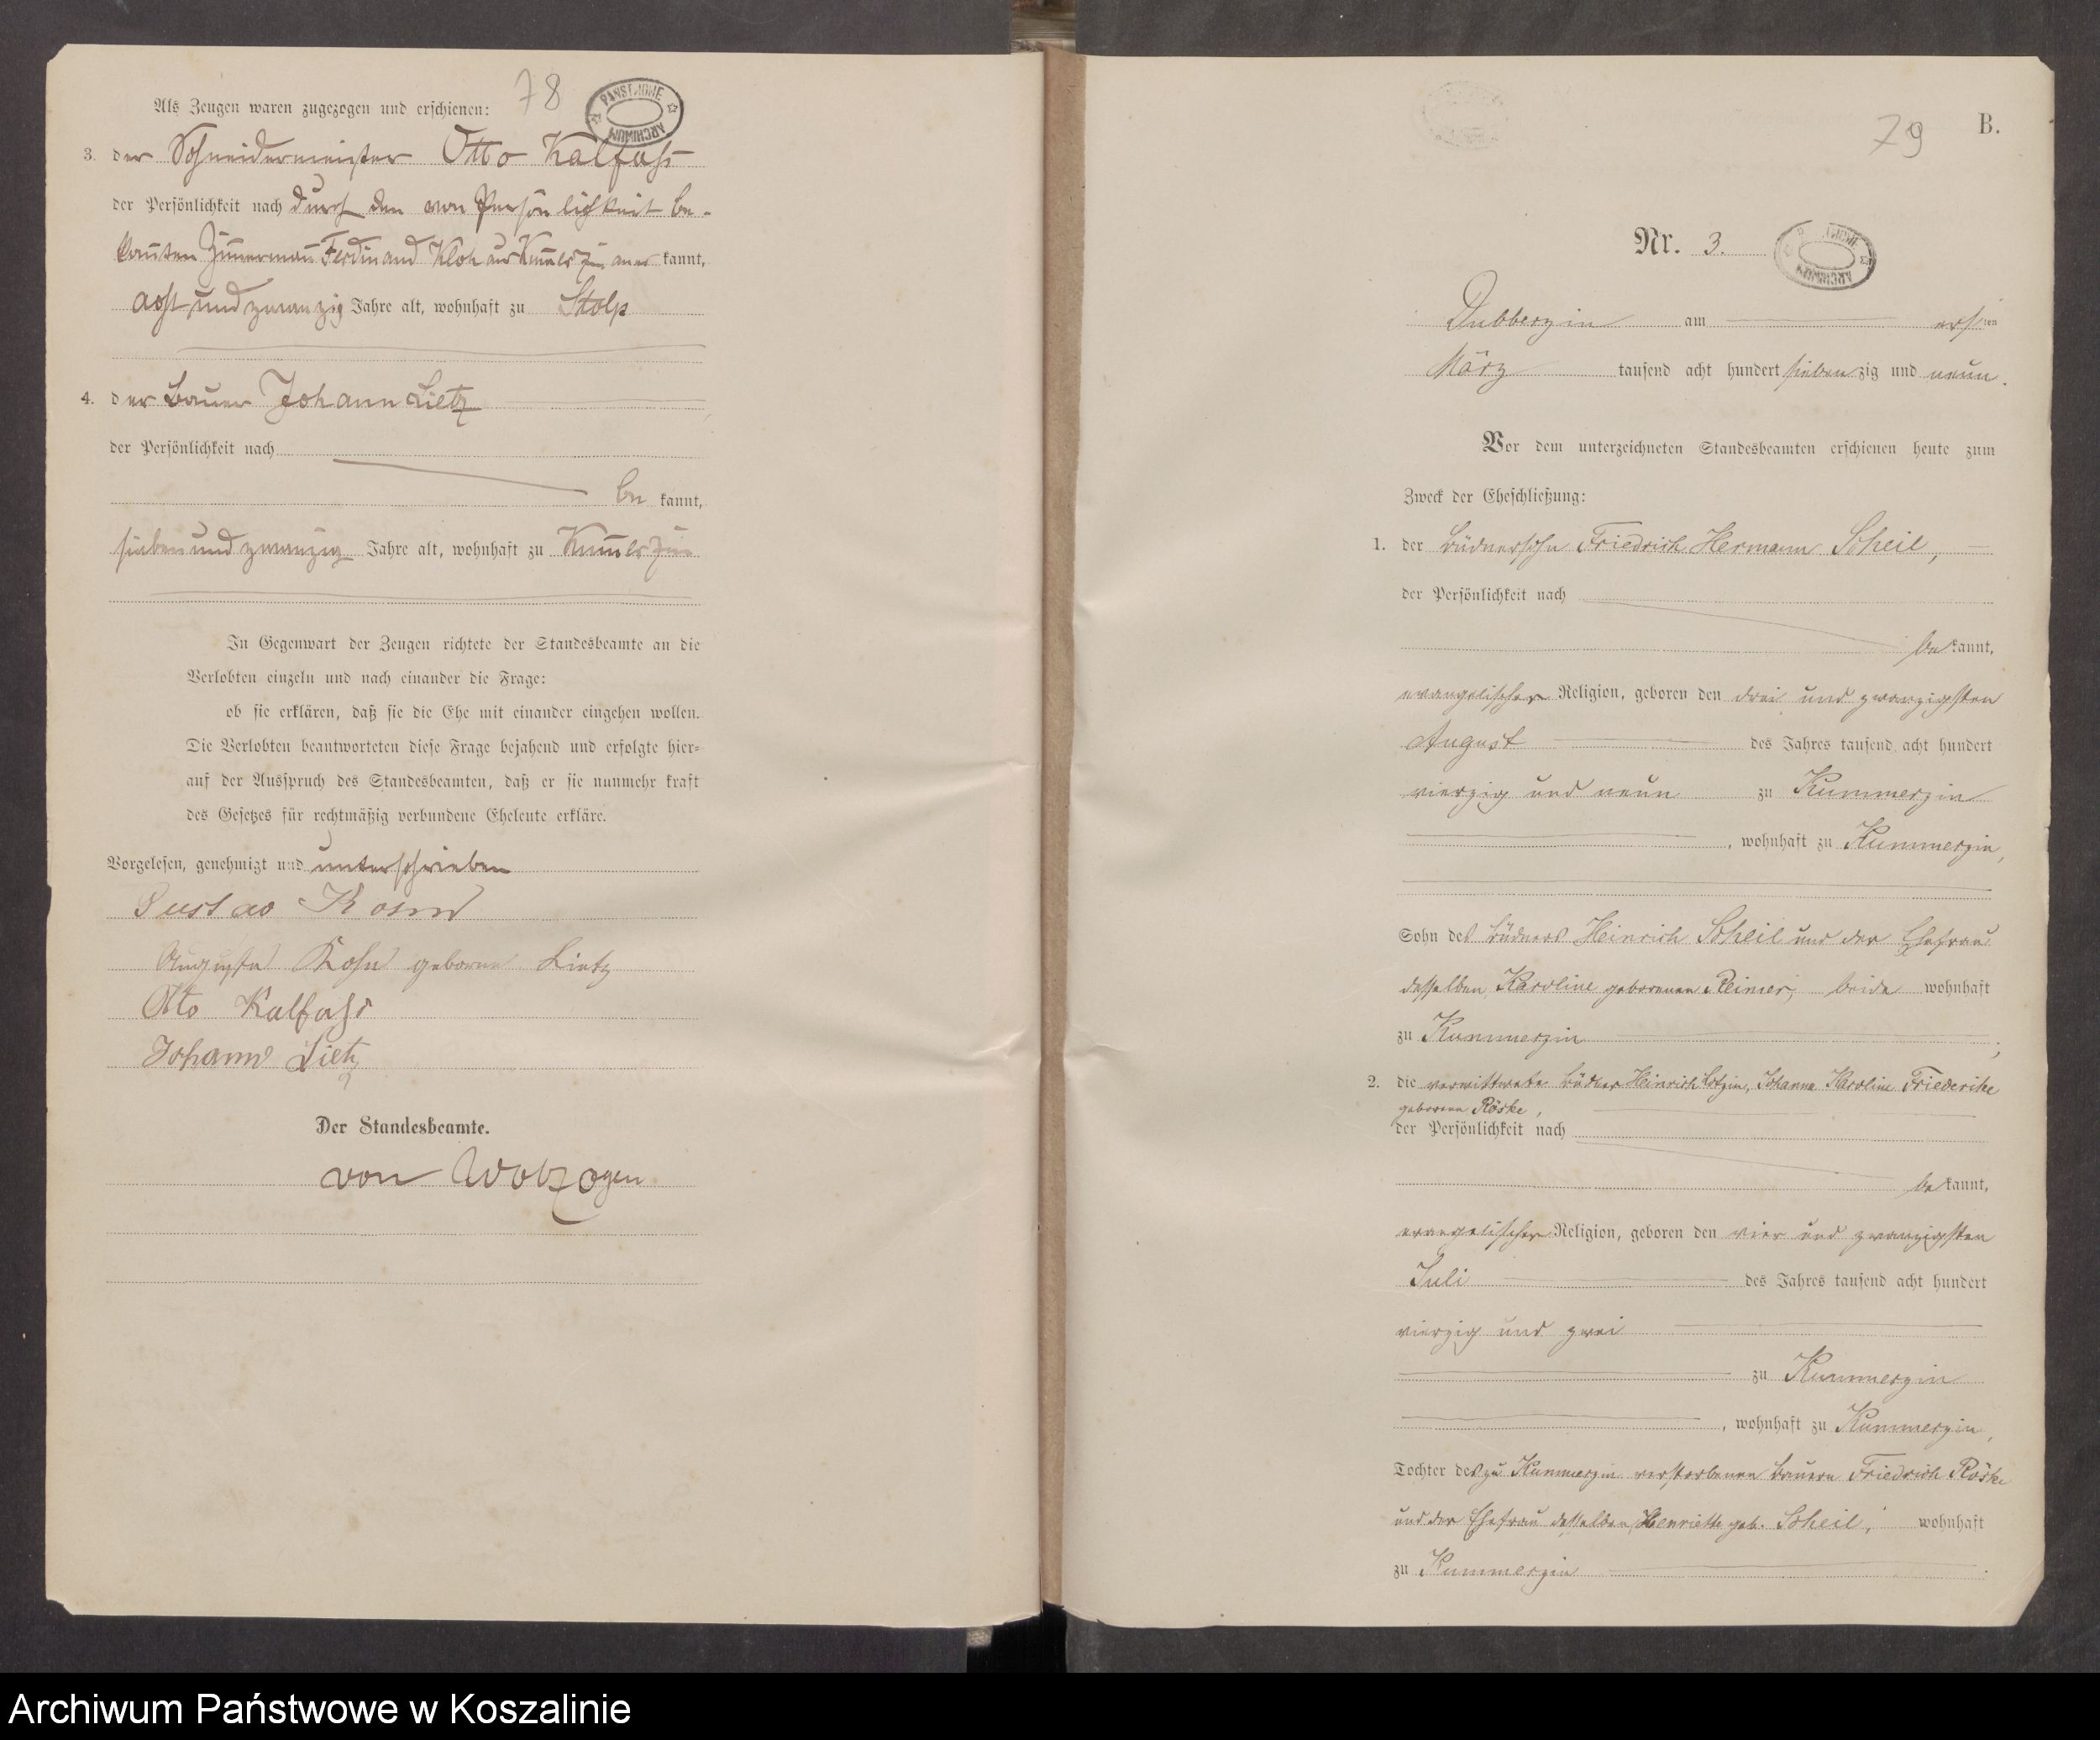 78
PAŃSTWOWE ARCHIWUM
Als Zeugen waren zugezogen und erschienen:
3. der Schneidermeister Otto Kalfahs
der Persönlichkeit nach durch den von Persönlichkeit be-
kannten Zimmermann Ferdinand aus Kummerzin aner kannt,
acht und zwanzig Jahre alt, wohnhaft zu Stolp
4. der Bauer Johann Lietz
der Persönlichkeit nach
be kannt,
sieben und zwanzig Jahre alt, wohnhaft zu Kummerzin
In Gegenwart der Zeugen richtete der Standesbeamte an die
Verlobten einzeln und nach einander die Frage:
ob sie erklären, daß sie die Ehe mit einander eingehen wollen.
Die Verlobten beantworteten diese Frage bejahend und erfolgte hier-
auf der Ausspruch des Standesbeamten, daß er sie nunmehr kraft
des Gesetzes für rechtmäßig verbundene Eheleute erkläre.
Vorgelesen, genehmigt und unterschrieben
Gustav
Auguste geborne Lietz
Otto Kalfahs
Johann Lietz
Der Standesbeamte.
von Wolzogen
79
B.
Nr. 3.
Dubberzin am ersten
März tausend acht hundert siebenzig und neun.
Vor dem unterzeichneten Standesbeamten erschienen heute zum
Zweck der Eheschließung:
1. der Büdnersohn Friedrich Hermann Scheil,
der Persönlichkeit nach
be kannt,
evangelischer Religion, geboren den drei und zwanzigsten
August des Jahres tausend acht hundert
vierzig und neun zu Kummerzin
, wohnhaft zu Kummerzin,
Sohn des Büdners Heinrich Scheil und der Ehefrau
desselben, Karoline geborenen Reimer, beide wohnhaft
zu Kummerzin ;
2. die verwittwete Büdner Heinrich Johanna Karoline Friederike
geborene Röske,
der Persönlichkeit nach
be kannt,
evangelischer Religion, geboren den vier und zwanzigsten
Juli des Jahres tausend acht hundert
vierzig und zwei
zu Kummerzin
, wohnhaft zu Kummerzin,
Tochter des zu Kummerzin verstorbenen Bauern Friedrich Röske
und der Ehefrau desselben, Henriette geb. Scheil, wohnhaft
zu Kummerzin
Archiwum Państwowe w Koszalinie